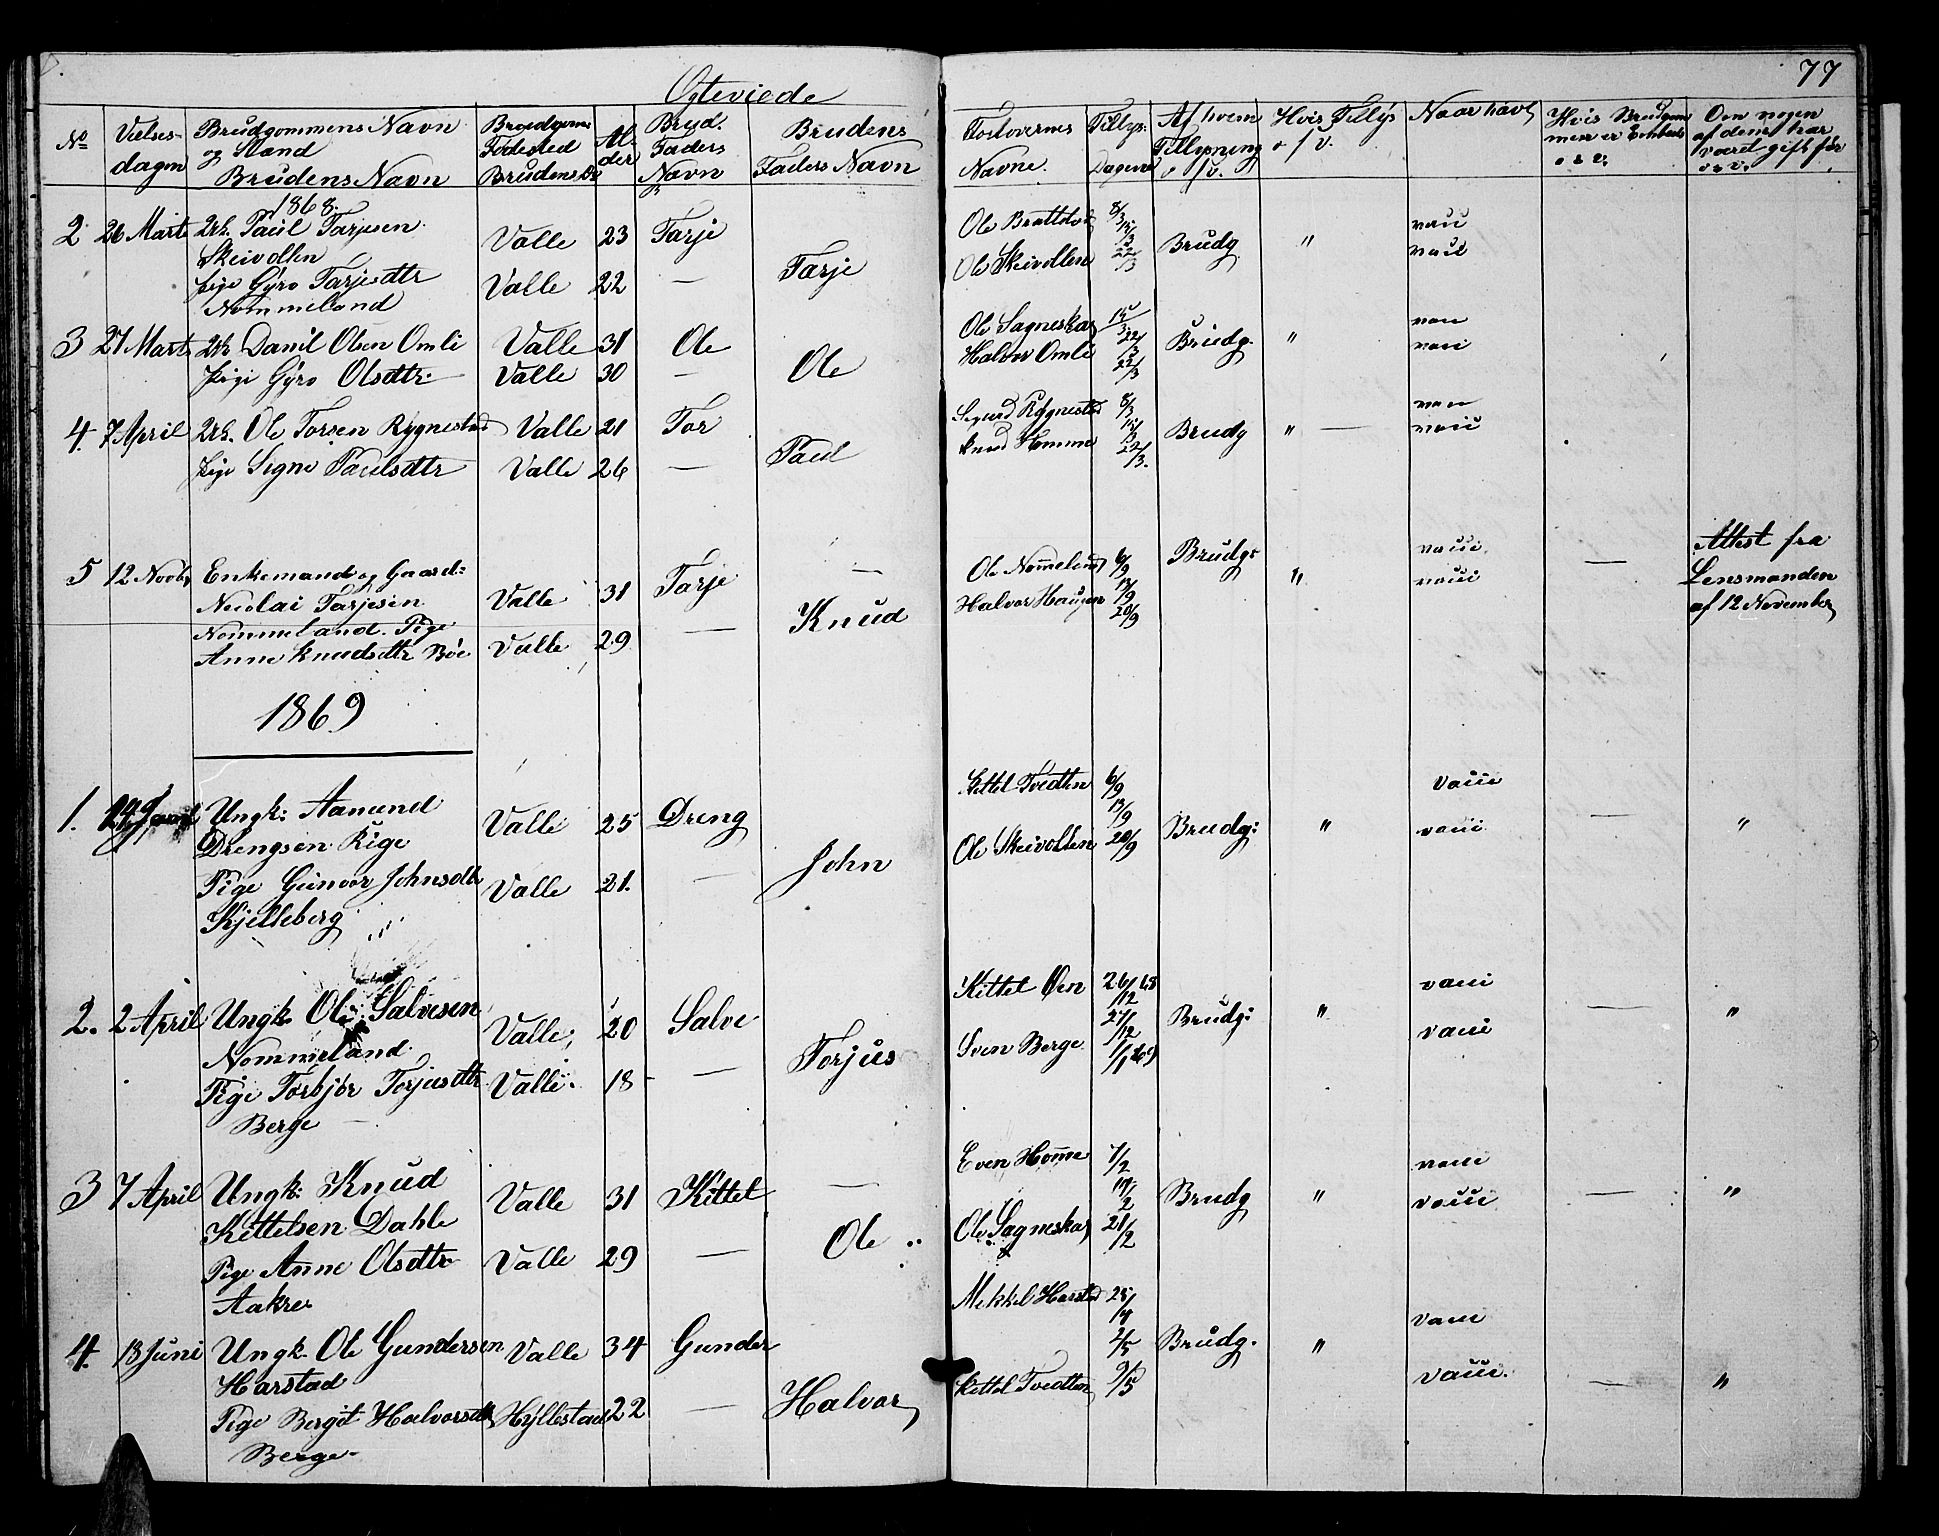 77
Ogteviede
No Vielses- dagen Brudgommens Navn og Stand Brudens Navn Fødested Brudens Al- der Brud. Faders Navn Brudens Faders Navn Forlovernes Navne. Tillys. Dagene Af hvem Tillysning o s v. Hvis Tillys o s v. Naar havt Hvis Brudgom men er Enkem o s v. Om nogen af dem har været gift før o s v.
1868.
2 26 Marts Paul Tarjesen Valle 23 Tarje Ole 8/3 vaui
Skeivollen 15/3 Brudg " vaui
Pige Gyro Tarjesdtr Valle 22 — Tarje Ole Skeivollen 22/3
Nommeland
3 27 Marts Danil Olsen Omli Valle 31 Ole Ole Sagneskar 15/3 Brudg. " vaui
Pige Gyro Olsdtr. Valle 30 — Ole Halvor Omli 22/3 vaui
4. 7 April Ole Torsen Rygnestad Valle 21 Tor Sigurd Rygnestad 8/3 Brudg " — vaui
Pige Signe Paulsdtr Valle 26 — Paul Knud Homme 15/3 22/3. vaui
5 12 Novbr Enkemand og Gaard: — Ole Nommeland 6/9 Brudg: vaui — Attest fra
Nicolai Tarjesen Valle 31 Tarje Halvor 13/9 " vaui Lensmanden
Nommeland. Pige — Knud 20/9 af 12 November
Anne Knudsdtr Bøe Valle 29
1869
1. Ungk: Aamund Valle 25 Dreng Kittel Tvedten 6/9 vaui
Drengsen Rige 13/9 Brudg: " vaui — "
Pige Gunvor Johnsdtr Valle 21. — John Ole Skeivollen 20/9
Kjelleberg
2. 2 April Ungk. Ole Salvesen Valle, 20 Salve Kittel Øen 26/12 68 Brudg: " vaui — "
Nommeland. 27/12 vaui
Pige Torbjør Torjusdtr Valle. 18 — Torjus Sven Berge. 1/1 69
Berge
3 7 April Ungk: Knud Valle 31 Kittel — Even Homme 7/2 Brudg " vaui — "
Kittelsen Dahle 14/2 vaui
Pige Anne Olsdtr Valle 29 — Ole Ole Sagneskar 21/2
Aakre
4. 13 Juni Ungk. Ole Gundersen Valle 34 Gunder Mikkel Harstad 25/4 Brudg. " vaui
Harstad 2/5 vaui. — "
Pige Bergit Halvorsdtr Hyllestad 22 — Halvor Kittel Tvedten 9/5
Berge